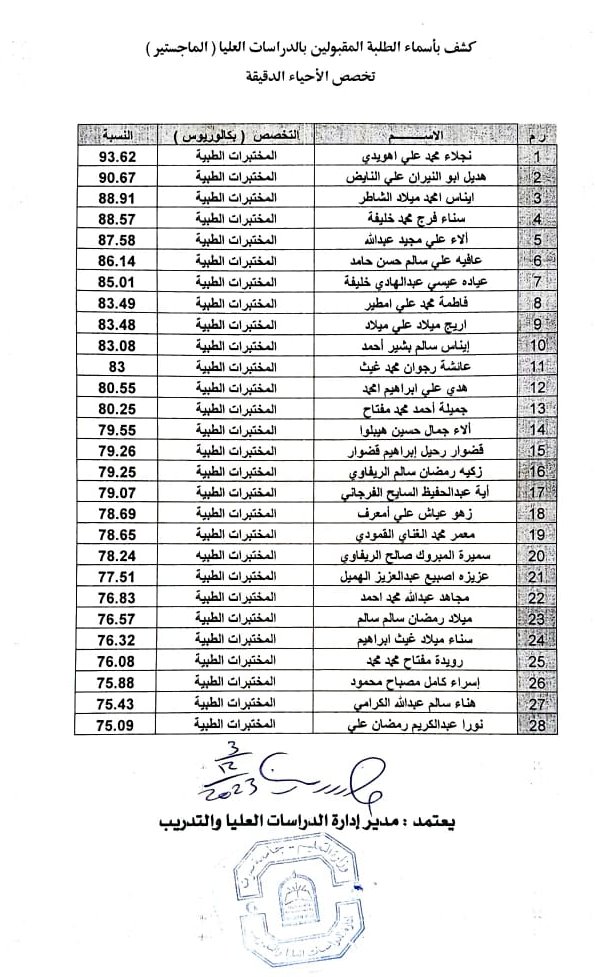 كشف بأسماء الطلبة المقبولين بالدراسات العليا ( الماجستير )
تخصص الأحياء الدقيقة
ر.م الاســـــم التخصص ( بكالوريوس ) النسبة
1 نجلاء محمد علي اهويدي المختبرات الطبية 93.62
2 هديل ابو النيران علي النايض المختبرات الطبية 90.67
3 ايناس امحمد ميلاد الشاطر المختبرات الطبية 88.91
4 سناء فرج محمد خليفة المختبرات الطبية 88.57
5 ألاء علي مجيد عبدالله المختبرات الطبية 87.58
6 عافيه علي سالم حسن حامد المختبرات الطبية 86.14
7 عياده عيسي عبدالهادي خليفة المختبرات الطبية 85.01
8 فاطمة محمد علي امطير المختبرات الطبية 83.49
9 اريج ميلاد علي ميلاد المختبرات الطبية 83.48
10 إيناس سالم بشير أحمد المختبرات الطبية 83.08
11 عائشة رجوان محمد غيث المختبرات الطبية 83
12 هدي علي ابراهيم امحمد المختبرات الطبية 80.55
13 جميلة أحمد محمد مفتاح المختبرات الطبية 80.25
14 ألاء جمال حسين هيبلوا المختبرات الطبية 79.55
15 قضوار رحيل إبراهيم قضوار المختبرات الطبية 79.26
16 زكيه رمضان سالم الريفاوي المختبرات الطبية 79.25
17 أية عبدالحفيظ السايح الفرجاني المختبرات الطبية 79.07
18 زهو عياش علي أمعرف المختبرات الطبية 78.69
19 معمر محمد الغناي القمودي المختبرات الطبية 78.65
20 سميرة المبروك صالح الريفاوي المختبرات الطبيه 78.24
21 عزيزه اصبيع عبدالعزيز الهميل المختبرات الطبية 77.51
22 مجاهد عبدالله محمد احمد المختبرات الطبية 76.83
23 ميلاد رمضان سالم سالم المختبرات الطبية 76.57
24 سناء ميلاد غيث ابراهيم المختبرات الطبية 76.32
25 رويدة مفتاح محمد محمد المختبرات الطبية 76.08
26 إسراء كامل مصباح محمود المختبرات الطبية 75.88
27 هناء سالم عبدالله الكرامي المختبرات الطبية 75.43
28 نورا عبدالكريم رمضان علي المختبرات الطبية 75.09
3
12
2023
يعتمد : مدير إدارة الدراسات العليا والتدريب